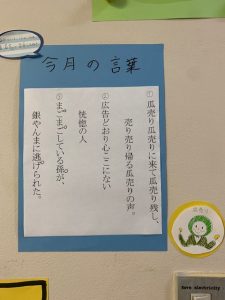 今月の言葉
①瓜売り瓜売りに来て瓜売り残し、
売り売り帰る瓜売りの声。
②広告どおり心ここにない
恍惚の人
③まごまごしている孫が、
銀やんまに逃げられた。
Save electricity